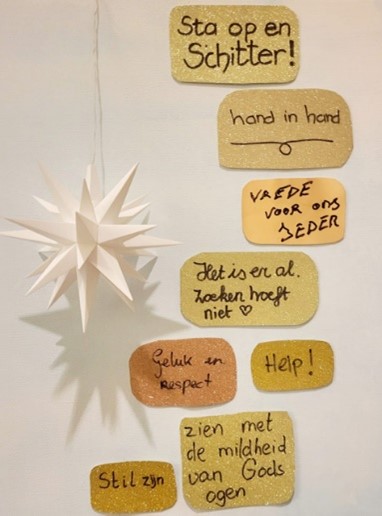 Sta op en
Schitter!
hand in hand
VREDE
VOOR ONS
IEDER
Het is er al.
Zoeken hoeft
niet ♡
Geluk en
respect
Help!
zien met
de mildheid
van Gods
ogen
Stil zijn